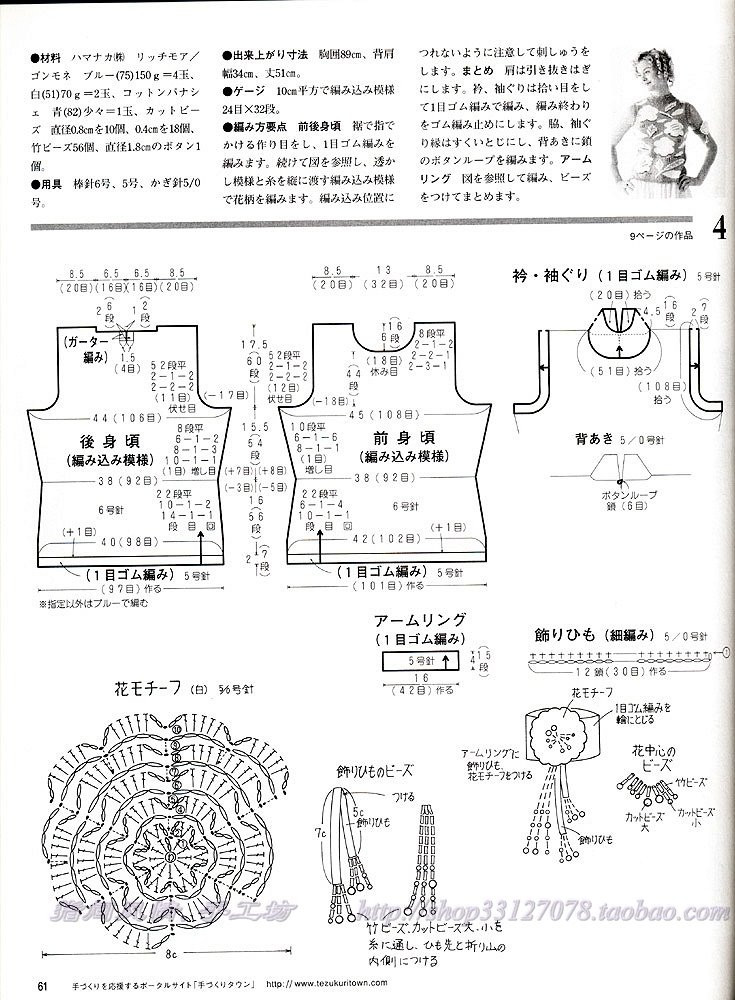 ●材料 ハマナカ㈱ リッチモア／
ゴンモネ ブルー(75)150g＝4玉、
白(51)70g＝2玉、コットンパナシ
ェ 青(82)少々＝1玉、カットビー
ズ 直径0.8cmを10個、0.4cmを18個、
竹ビーズ56個、直径1.8cmのボタン1
個。
●用具 棒針6号、5号、かぎ針5/0
号。
●出来上がり寸法 胸囲89cm、背肩
幅34cm、丈51cm。
●ゲージ 10cm平方で編み込み模様
24目×32段。
●編み方要点 前後身頃 裾で指で
かける作り目をし、1目ゴム編みを
編みます。続けて図を参照し、透か
し模様と糸を縦に渡す編み込み模様
で花柄を編みます。編み込み位置に
つれないように注意して刺しゅうを
します。まとめ 肩は引き抜きはぎ
にします。衿、袖ぐりは拾い目をし
て1目ゴム編みで編み、編み終わり
をゴム編み止めにします。脇、袖ぐ
り縁はすくいとじにし、背あきに鎖
のボタンループを編みます。アーム
リング 図を参照して編み、ビーズ
をつけてまとめます。
9ページの作品
4
8.5 6.5 6.5 8.5
(20目)(16目)(16目)(20目)
2(6段)
1(2段)
(ガーター編み)
1.5
(4目)
52段平
2-1-2
2-2-2
(11目)
伏せ目
(-17目)
44(106目)
後身頃
(編み込み模様)
8段平
6-1-2
8-1-3
10-1-1
(1目)増し目
(+7目)
38(92目)
(-3目)
6号針
22段平
10-1-2
14-1-1
段 目 回
(+1目)
40(98目)
(1目ゴム編み) 5号針
(97目)作る
※指定以外はブルーで編む
17.5(60段)
15.5(54段)
16(56段)
2(7段)
8.5 13 8.5
(20目)(32目)(20目)
6(16段)
(18目)
休み目
8段平
2-1-2
2-2-1
2-3-1
(44段)
52段平
2-1-2
2-2-2
(12目)
伏せ目
(-18目)
45(108目)
前身頃
(編み込み模様)
10段平
6-1-6
8-1-1
(1目)
増し目
(+8目)
38(92目)
(-5目)
22段平
6-1-4
10-1-1
段 目 回
6号針
(+1目)
42(102目)
(1目ゴム編み) 5号針
(101目)作る
衿・袖ぐり(1目ゴム編み) 5号針
(20目)拾う
4.5(16段)
2(7段)
(51目)拾う
(108目)
拾う
背あき 5/0号針
ボタンループ
鎖(6目)
アームリング
(1目ゴム編み)
5号針
4(15段)
16
(42目)作る
飾りひも(細編み) 5/0号針
①
12鎖(30目)作る
花モチーフ (白) 5/6号針
8c
飾りひものビーズ
つける
5c
飾りひも
7c
竹ビーズ、カットビーズ大、小を
糸に通し、ひも先と折り山の
内側につける
花モチーフ
1目ゴム編みを
輪にとじる
アームリングに
飾りひも、
花モチーフをつける
飾りひも
花中心の
ビーズ
竹ビーズ
カットビーズ
大
カットビーズ
小
http://shop33127078.taobao.com
61 手づくりを応援するポータルサイト「手づくりタウン」 http://www.tezukuritown.com